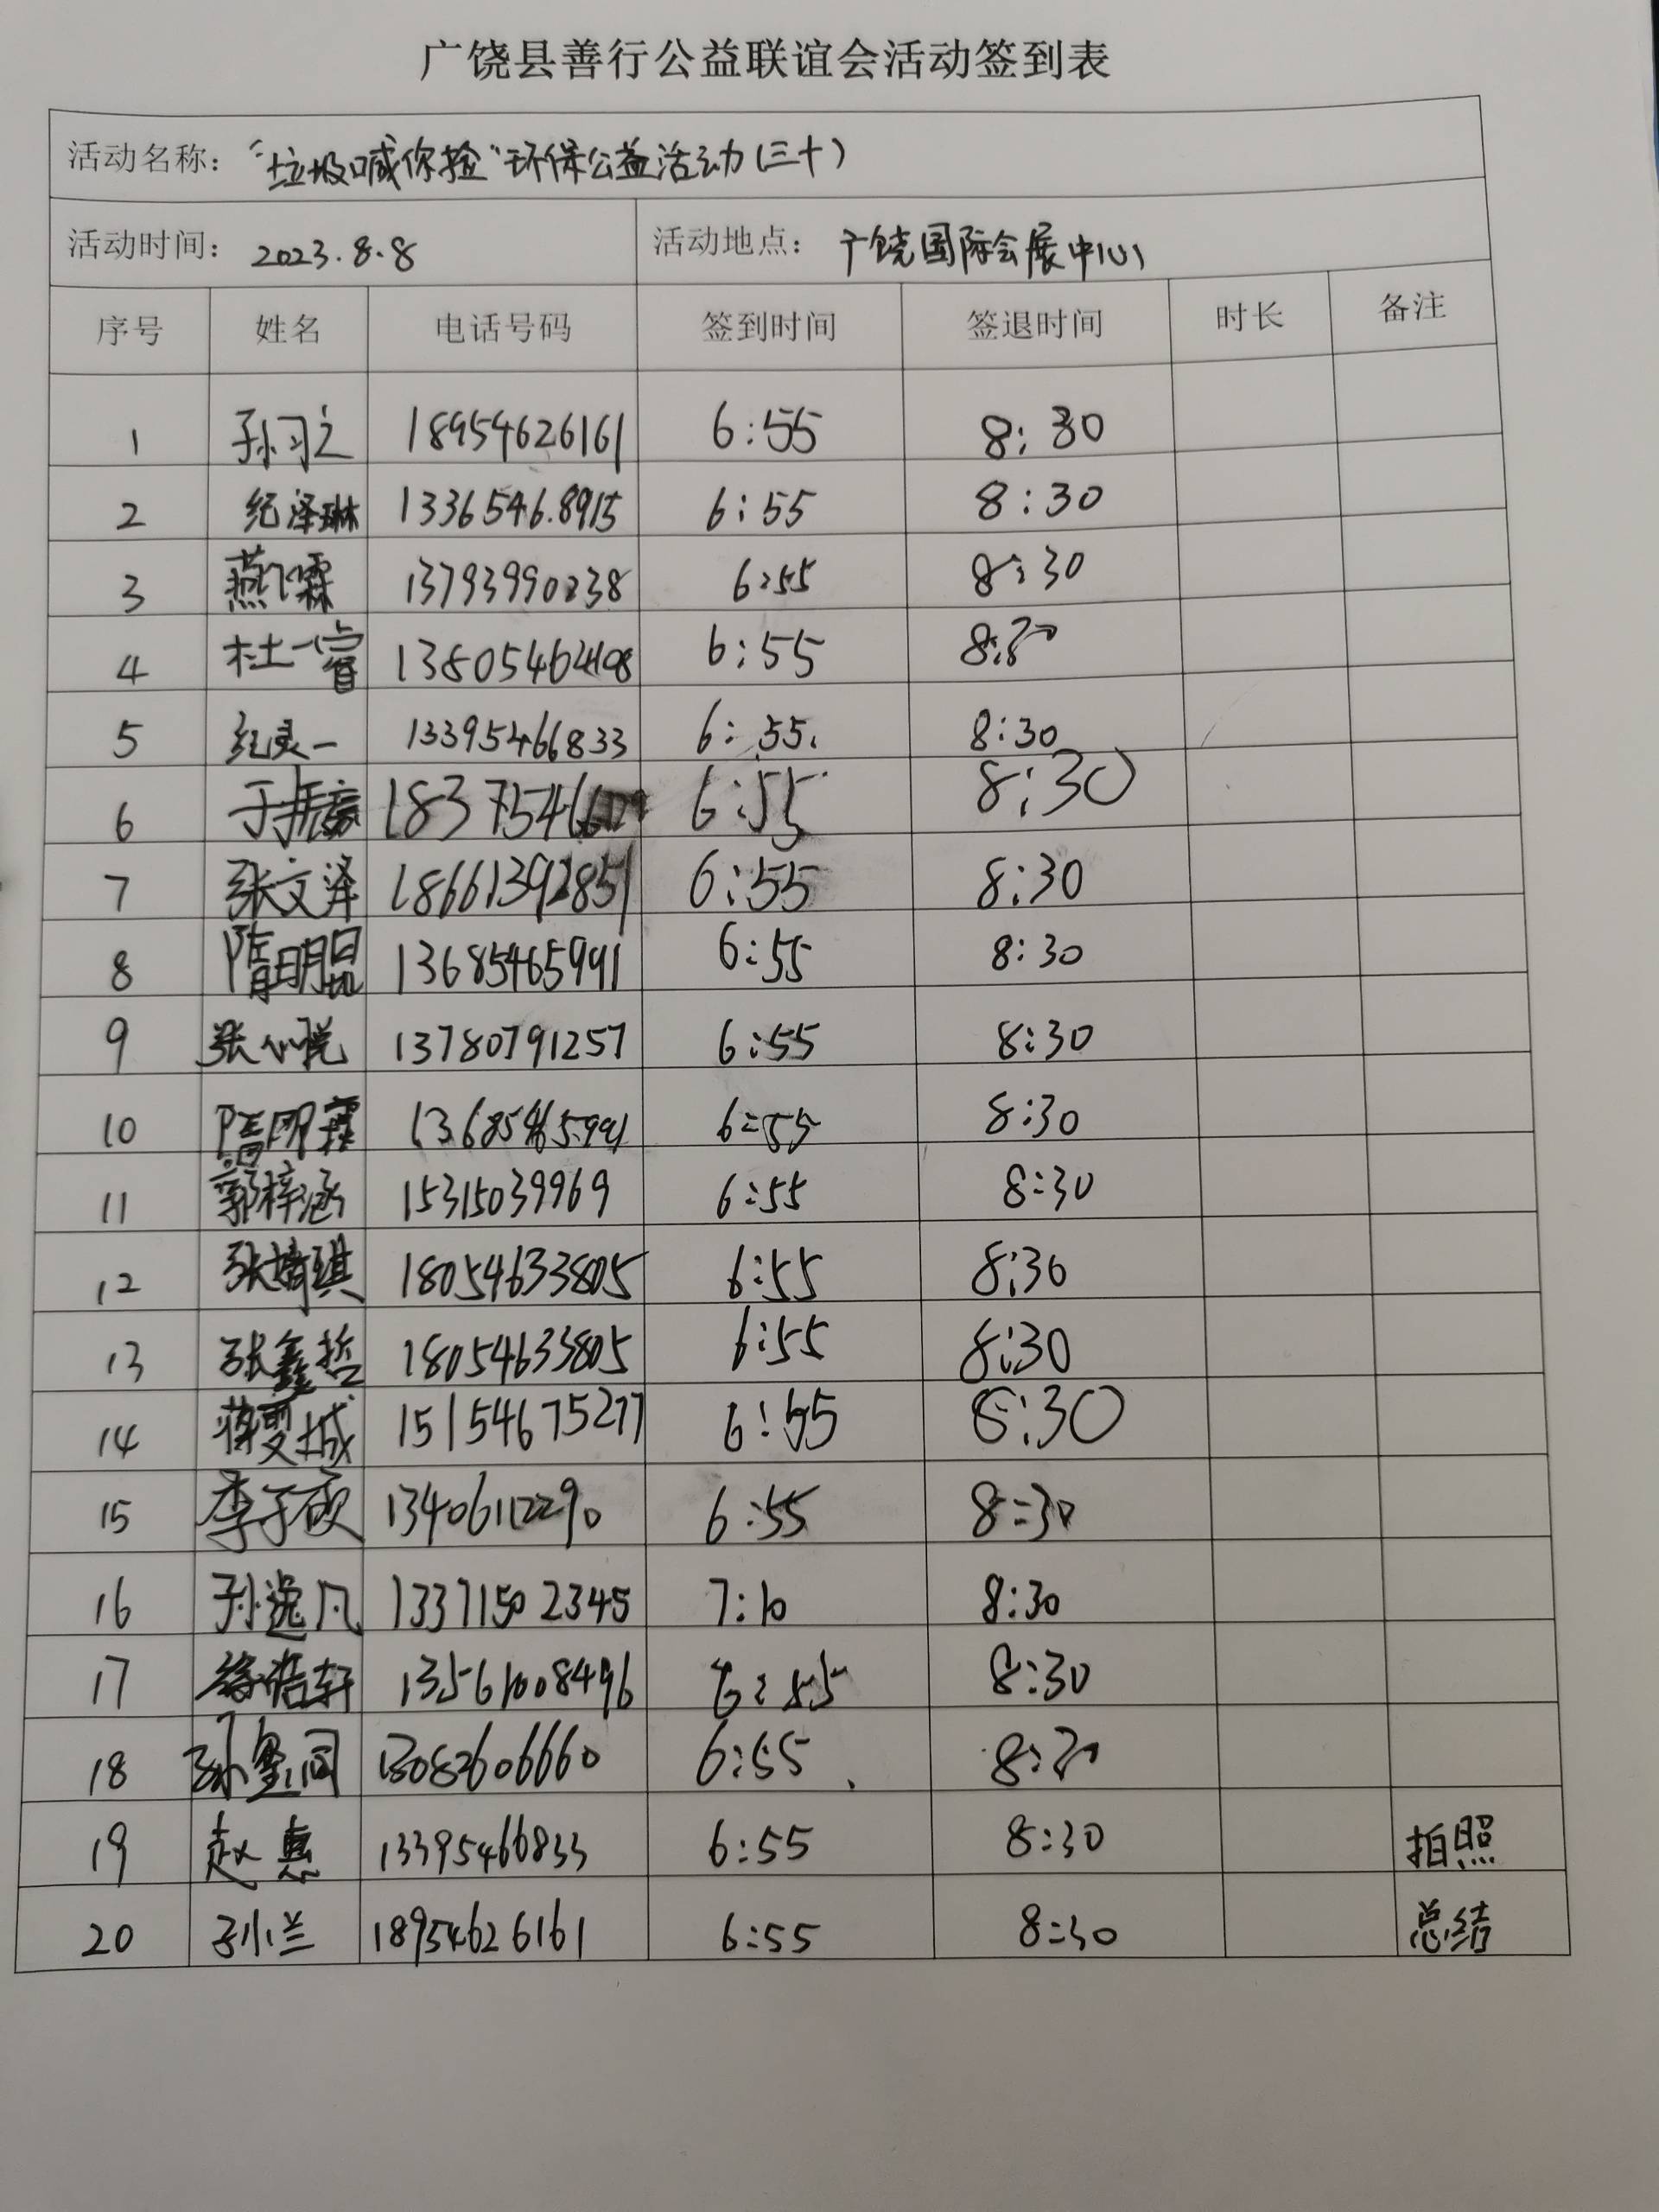 广饶县善行公益联谊会活动签到表
活动名称：“垃圾喊你捡”环保公益活动（三十）
活动时间：2023.8.8 活动地点：广饶国际会展中心
序号 姓名 电话号码 签到时间 签退时间 时长 备注
1 孙习之 18954626161 6:55 8:30
2 纪泽琳 1336546.8915 6:55 8:30
3 燕飞霖 13793990238 6:55 8:30
4 杜一睿 13805464198 6:55 8:30
5 纪灵一 13395466833 6:55. 8:30
6 于振豪 6:55 8:30
7 张文泽 18661392851 6:55 8:30
8 隋明昆 13685465991 6:55 8:30
9 张小悦 13780791257 6:55 8:30
10 隋明霖 13685465991 6:55 8:30
11 郭梓涵 15315039969 6:55 8:30
12 张婧琪 18054633805 6:55 8:30
13 张鑫哲 18054633805 6:55 8:30
14 15154675277 6:55 8:30
15 李子硕 13406112290 6:55 8:30
16 孙逸凡 13371502345 7:10 8:30
17 徐浩轩 13561008496 6:55 8:30
18 13082606660 6:55 8:30
19 赵惠 13395466833 6:55 8:30 拍照
20 孙小兰 18954626161 6:55 8:30 总结